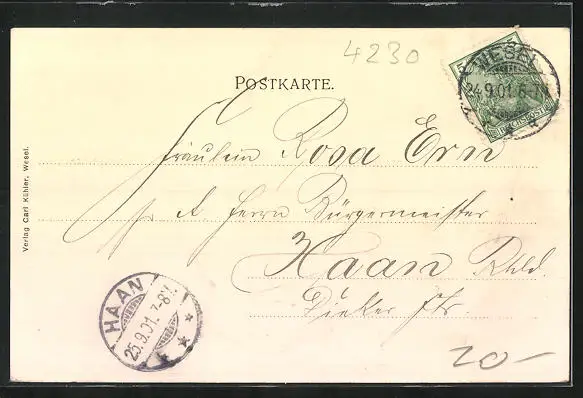 4230
WESEL
24.9.01.6-7N
REICHSPOST
POSTKARTE.
Fräulein Rosa Ern
p. A. Herrn Bürgermeister
Haan Rhld.
Verlag Carl Kühler, Wesel.
HAAN
25.9.01.7-8V.
20-